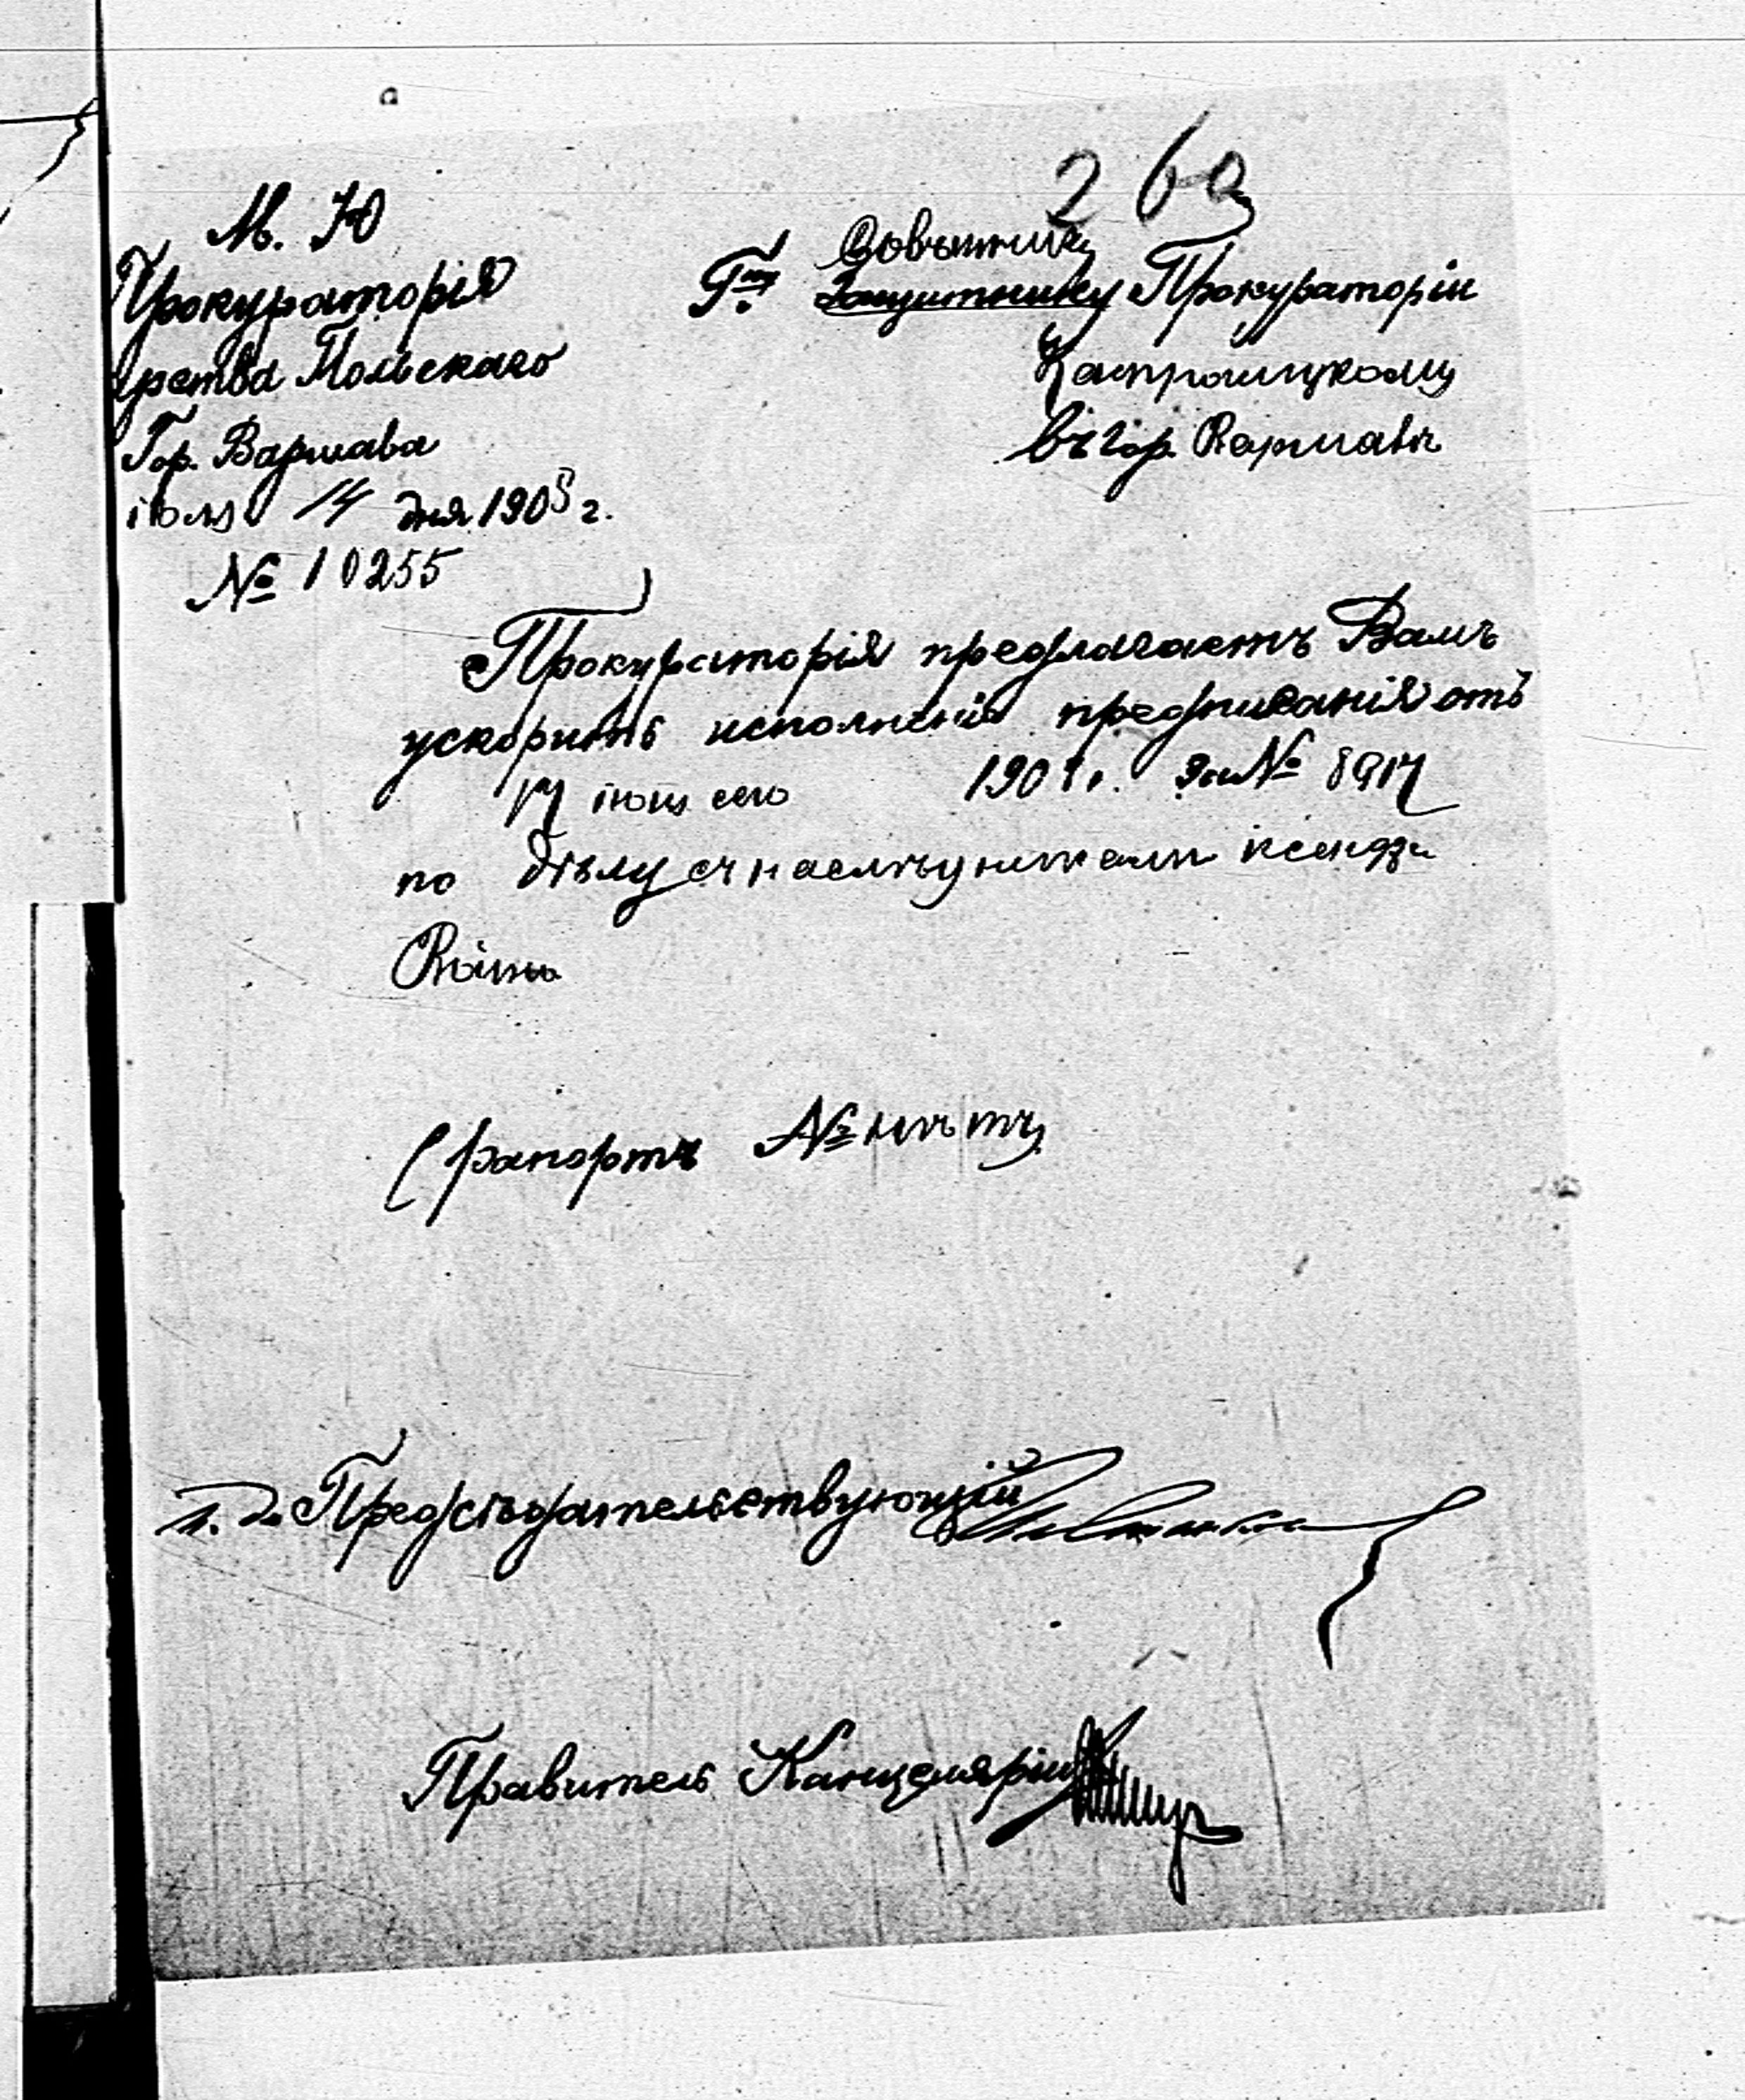 26а
М. Ю
Прокураторія
Царства Польскаго
Гор. Варшава
іюля 14 дня 1905 г.
№ 10255
Совѣтнику
Г-ну Защитнику Прокураторіи
въ гор. Варшавѣ
Прокураторія предлагаетъ Вамъ
ускорить исполненіе предписанія отъ
17 іюня сего 190 г. за №
по дѣлу съ наслѣдниками ксендза
(рапортъ №
и. д. Предсѣдательствующій
Правитель Канцеляріи